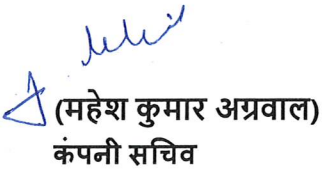 (महेश कुमार अग्रवाल)
कंपनी सचिव